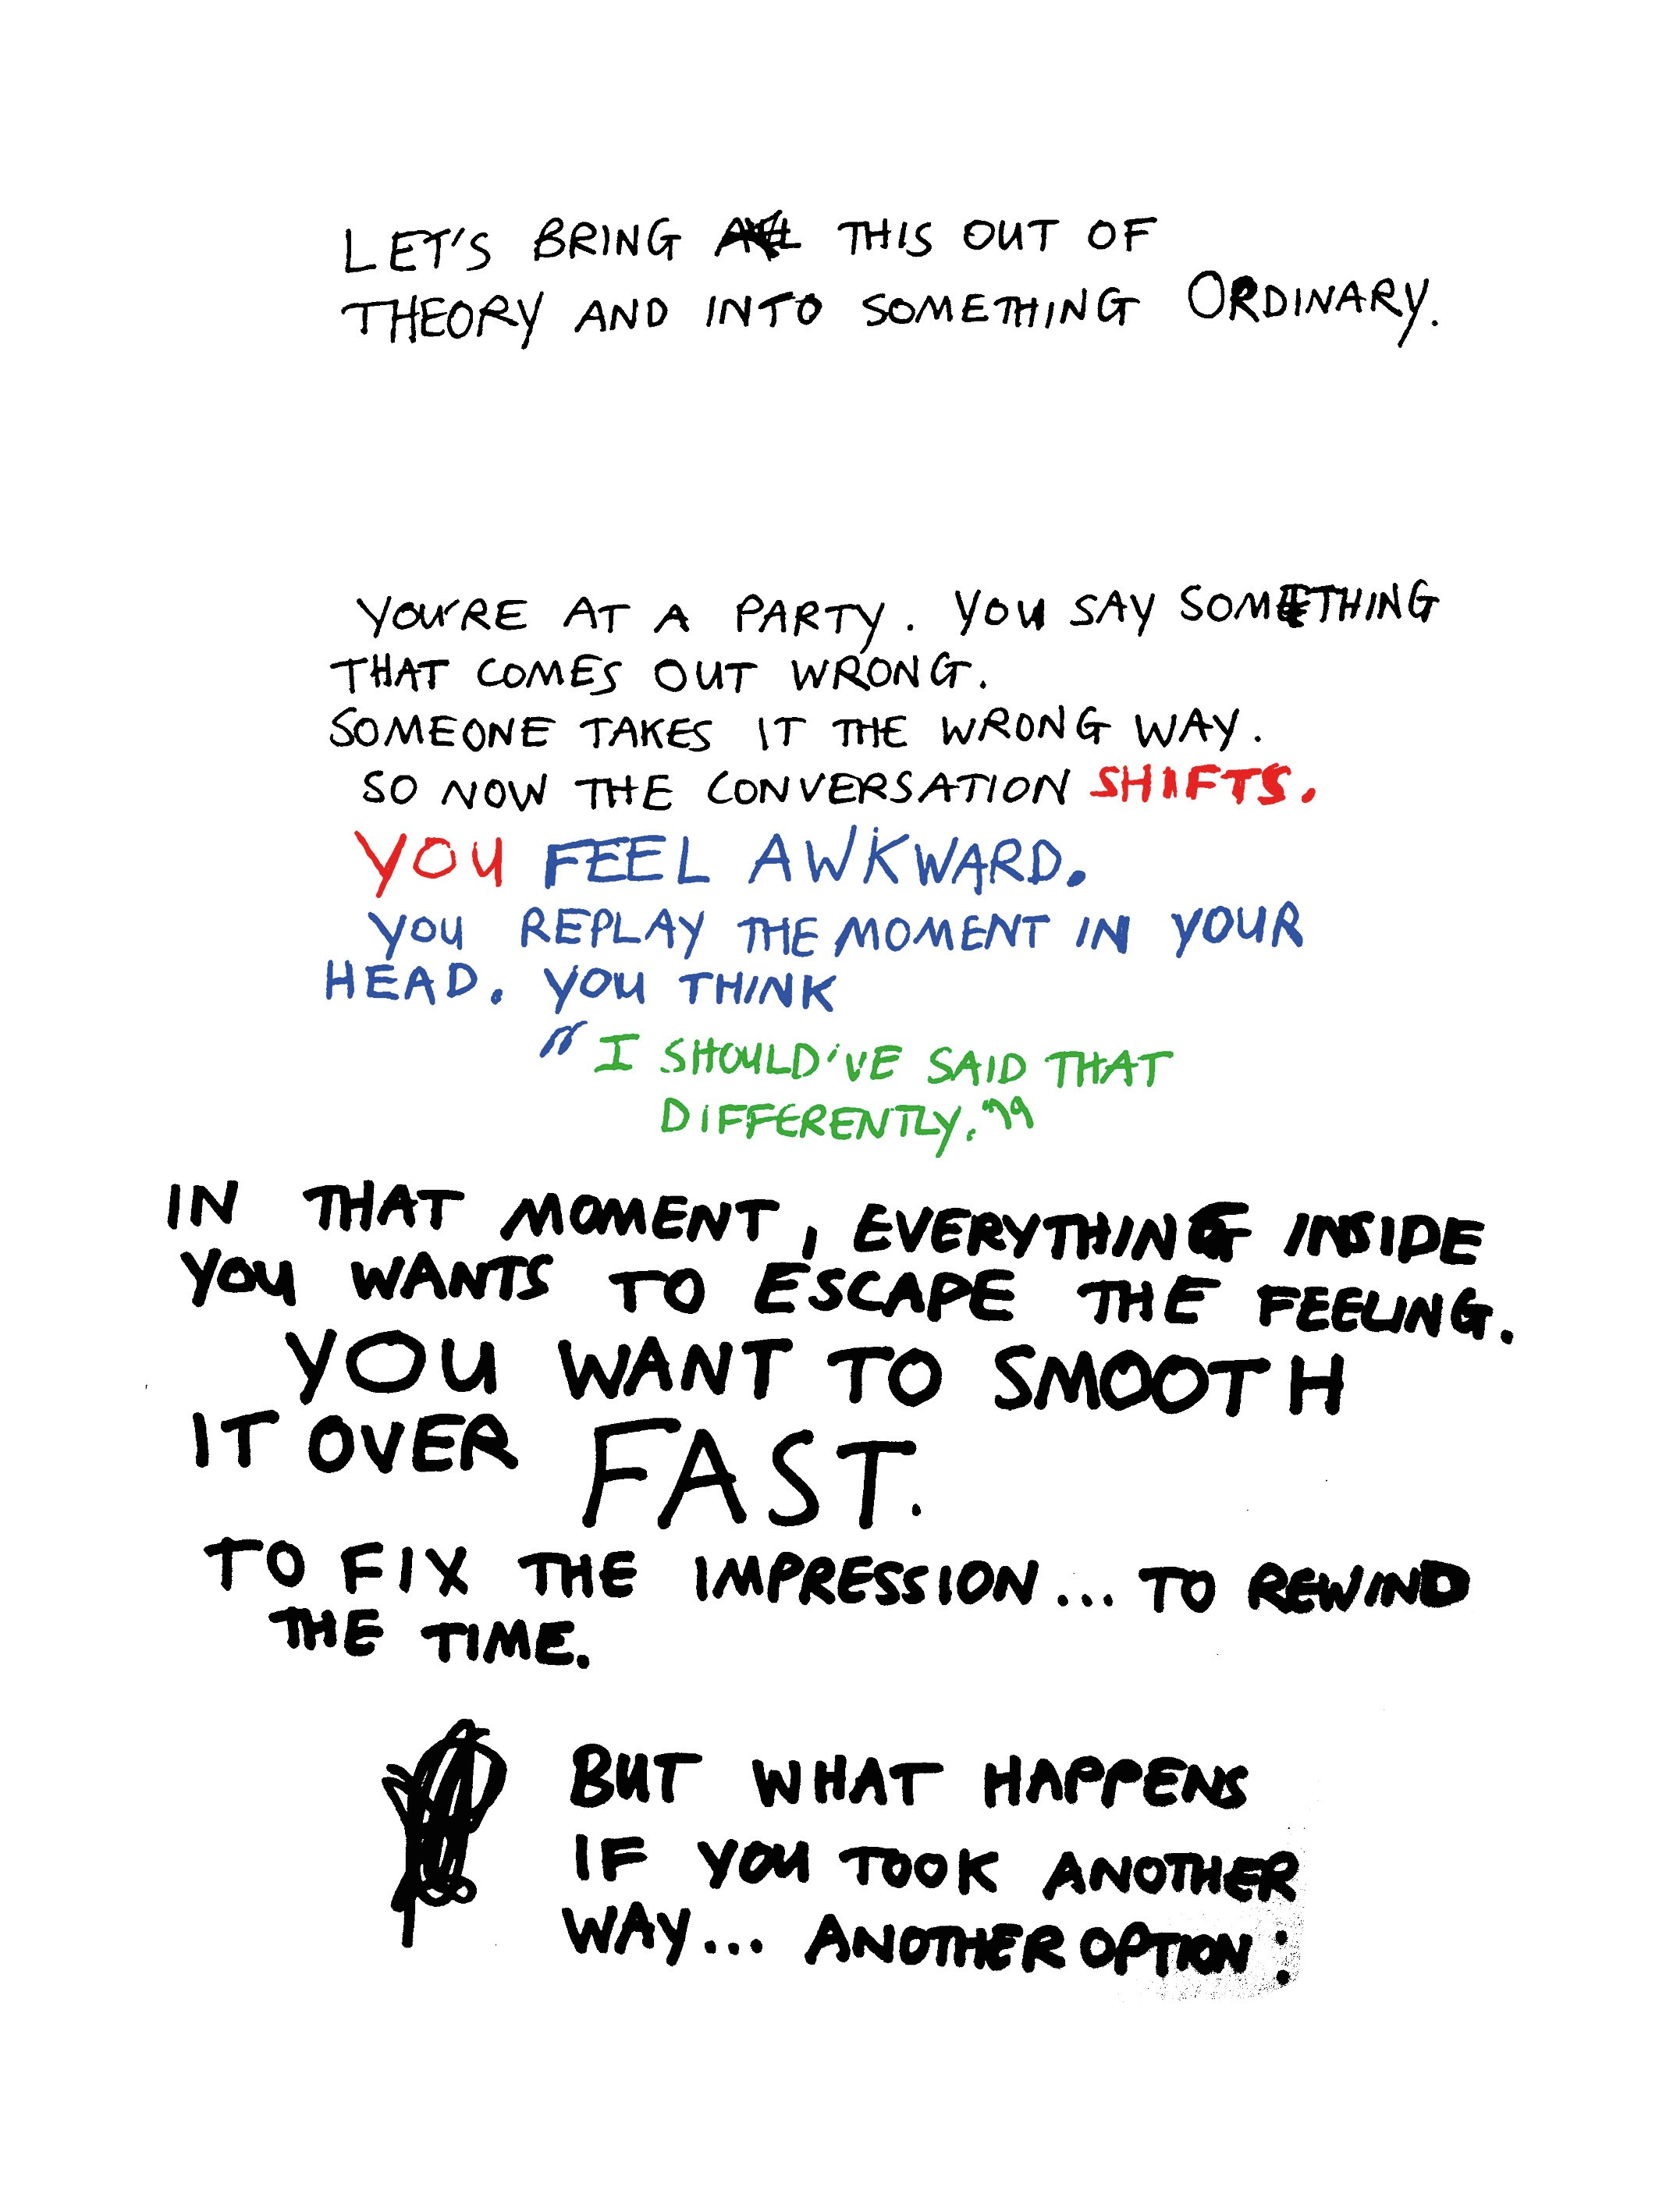 LET'S BRING THIS OUT OF
THEORY AND INTO SOMETHING ORDINARY.
YOU'RE AT A PARTY. YOU SAY SOMETHING
THAT COMES OUT WRONG.
SOMEONE TAKES IT THE WRONG WAY.
SO NOW THE CONVERSATION SHIFTS.
YOU FEEL AWKWARD.
YOU REPLAY THE MOMENT IN YOUR
HEAD. YOU THINK
"I SHOULD'VE SAID THAT
DIFFERENTLY."
IN THAT MOMENT, EVERYTHING INSIDE
YOU WANTS TO ESCAPE THE FEELING.
YOU WANT TO SMOOTH
IT OVER FAST.
TO FIX THE IMPRESSION... TO REWIND
THE TIME.
BUT WHAT HAPPENS
IF YOU TOOK ANOTHER
WAY... ANOTHER OPTION: